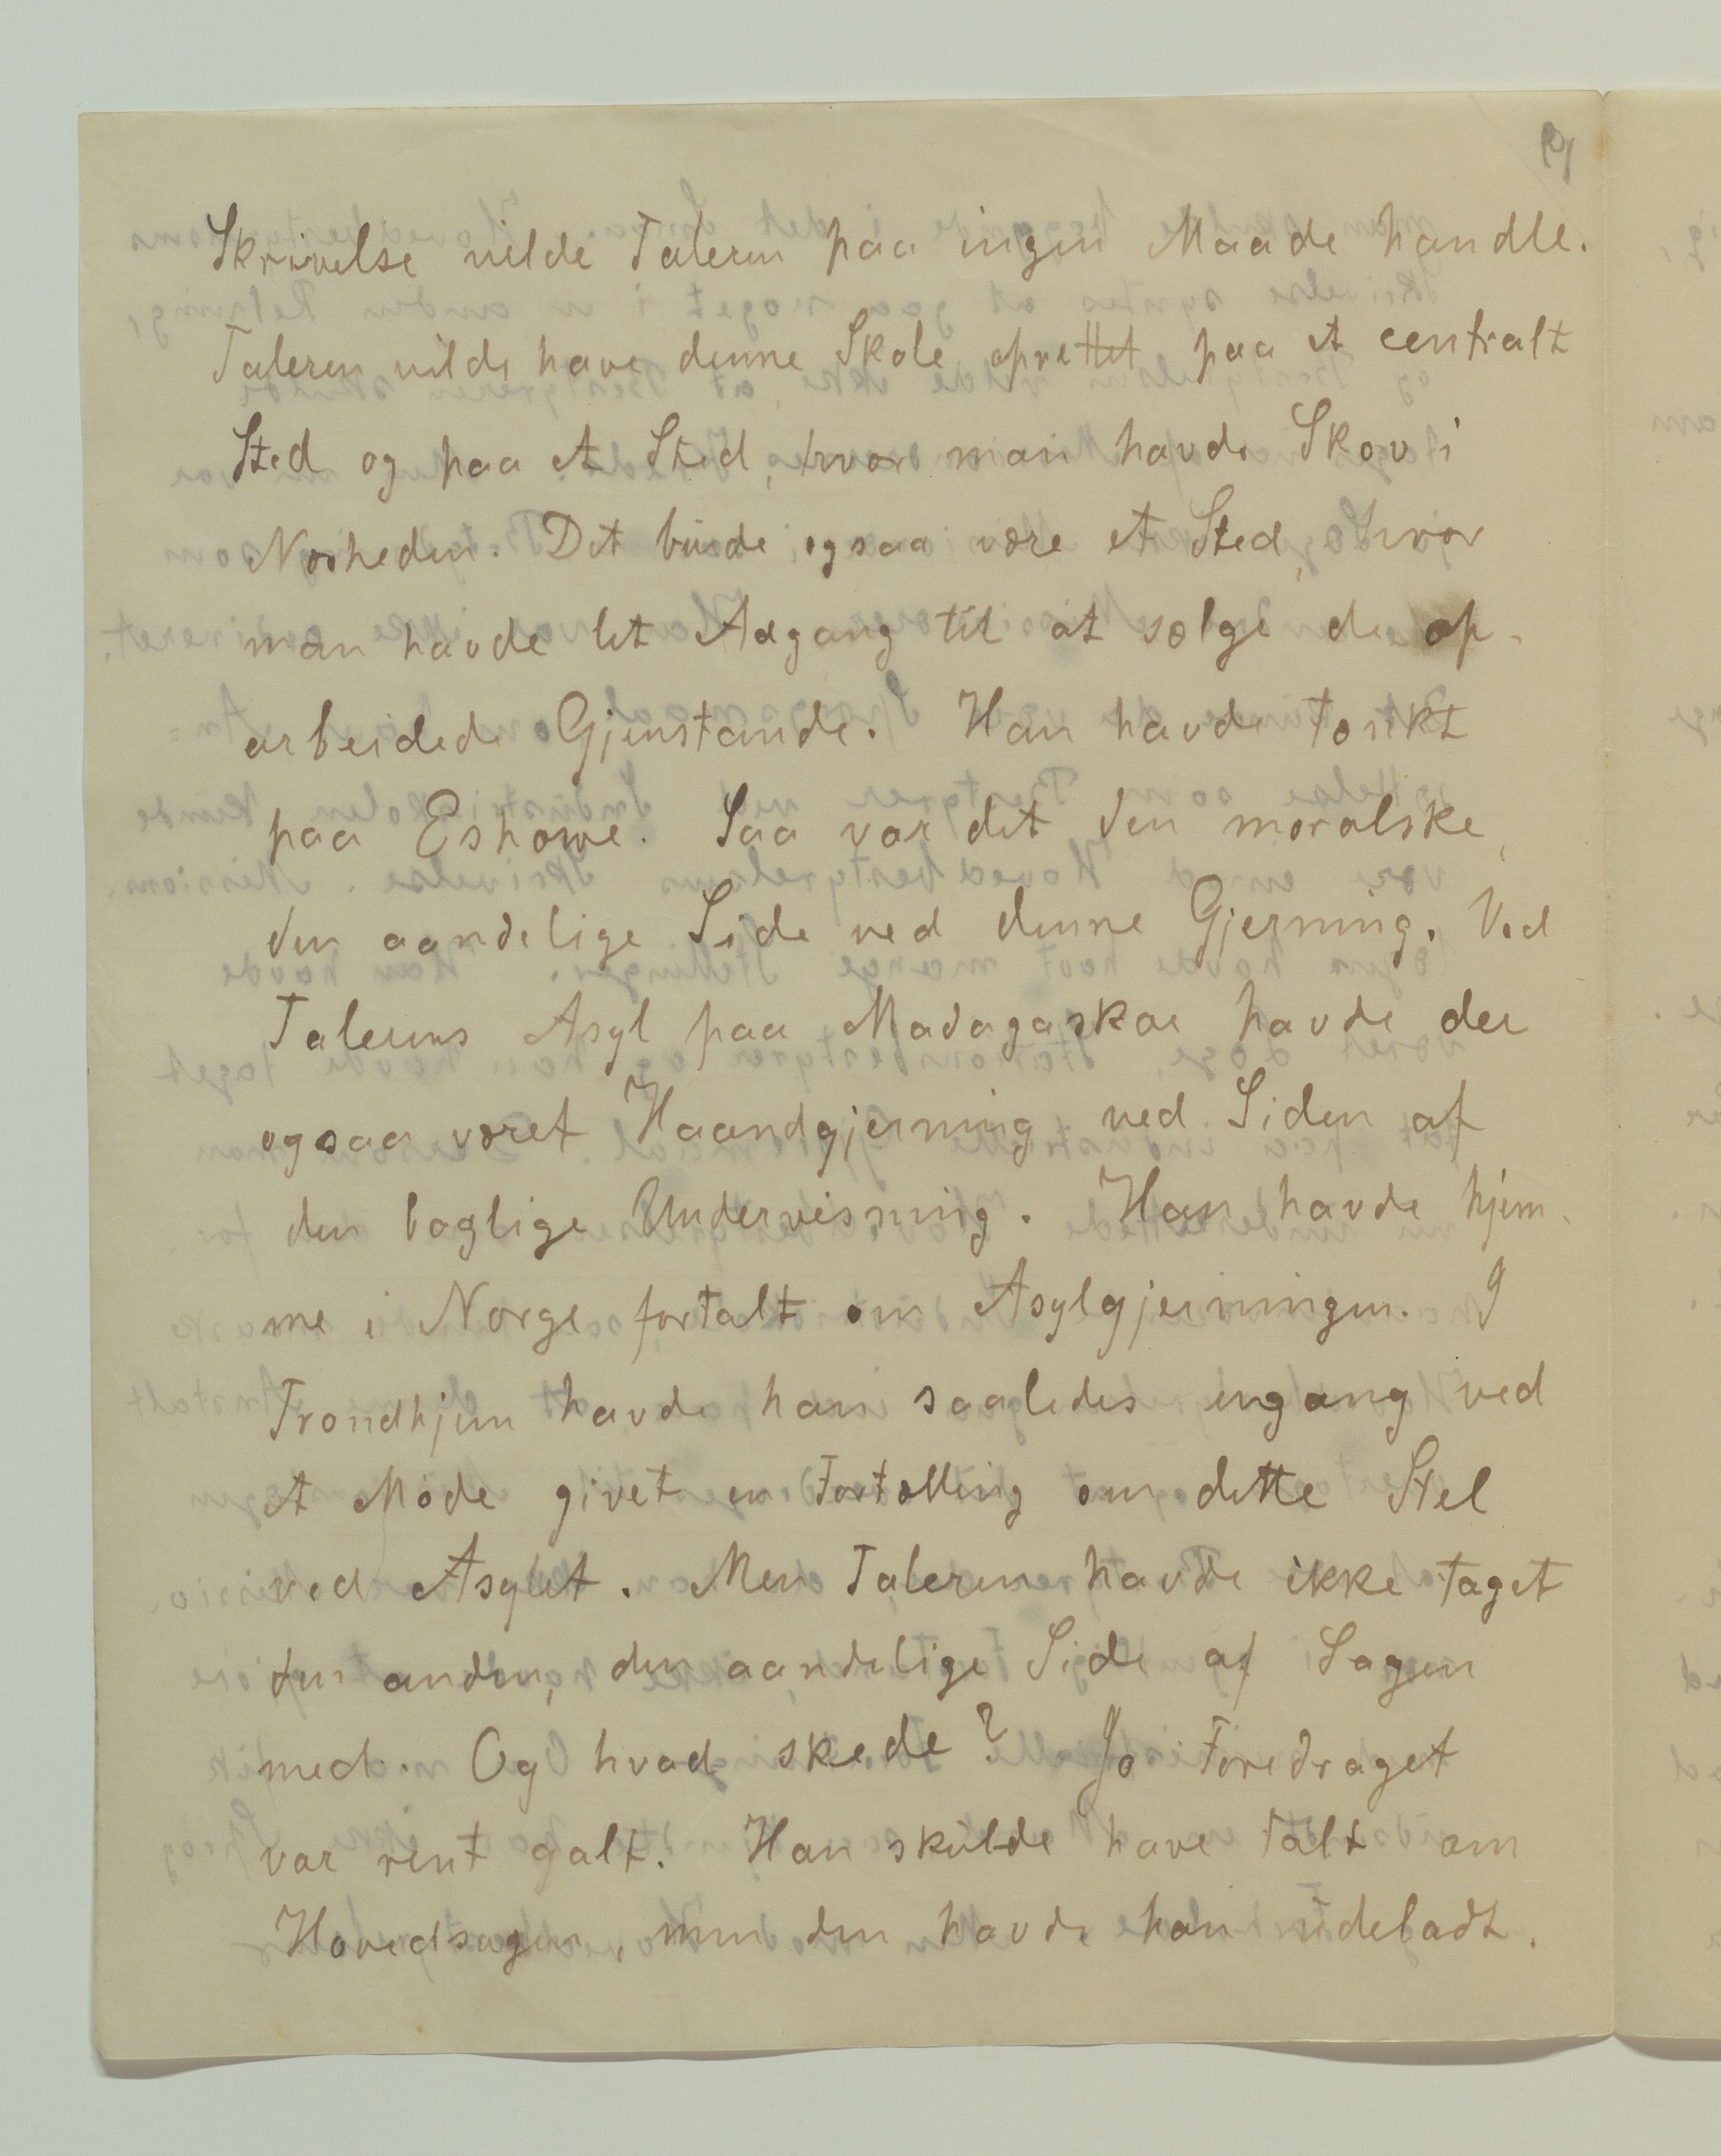 Skrivelse vilde Taleren paa ingen Maade handle.
Taleren vilde have denne Skole oprettet paa et centralt
Sted og paa et Sted, hvor man havde Skov i
Nærheden. Det burde ogsaa være et Sted, hvor
man havde let Adgang til at sælge de op-
arbeidede Gjenstande. Han havde tænkt
paa Eshowe. Saa var det den moralske,
den aandelige Side ved denne Gjerning. Ved
Talerens Asyl paa Madagaskar havde der
ogsaa været Haandgjerning ved Siden af
den boglige Undervisning. Han havde hjem-
me i Norge fortalt om Asylgjerningen. I
Trondhjem havde han saaledes engang ved
et Møde givet en Fortælling om dette Stel
ved Asylet. Men Taleren havde ikke taget
den anden, den aandelige Side af Sagen
med. Og hvad skede? Jo Foredraget
var rent galt. Han skulde have talt om
Hovedsagen, men den havde han udeladt.